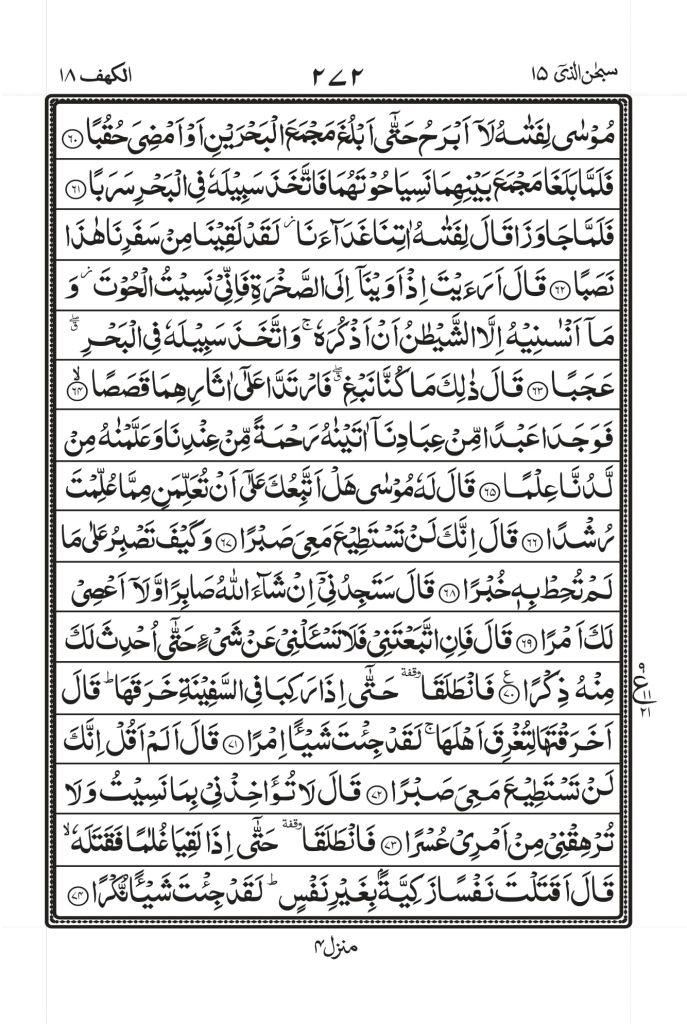 سبحٰن الذیٓ ١٥ ٢٧٢ الکهف ١٨
مُوۡسٰى لِفَتٰٮهُ لَاۤ اَبۡرَحُ حَتّٰۤى اَبۡلُغَ مَجۡمَعَ الۡبَحۡرَيۡنِ اَوۡ اَمۡضِىَ حُقُبًا ﴿٦٠﴾
فَلَمَّا بَلَغَا مَجۡمَعَ بَيۡنِهِمَا نَسِيَا حُوۡتَهُمَا فَاتَّخَذَ سَبِيۡلَهٗ فِى الۡبَحۡرِ سَرَبًا ﴿٦١﴾
فَلَمَّا جَاوَزَا قَالَ لِفَتٰٮهُ اٰتِنَا غَدَآءَنَا ز لَقَدۡ لَقِيۡنَا مِنۡ سَفَرِنَا هٰذَا
نَصَبًا ﴿٦٢﴾ قَالَ اَرَءَيۡتَ اِذۡ اَوَيۡنَاۤ اِلَى الصَّخۡرَةِ فَاِنِّىۡ نَسِيۡتُ الۡحُوۡتَ ز وَ
مَاۤ اَنۡسٰٮنِيۡهُ اِلَّا الشَّيۡطٰنُ اَنۡ اَذۡكُرَهٗ‌ ۚ وَاتَّخَذَ سَبِيۡلَهٗ فِى الۡبَحۡرِ ‌ۖق
عَجَبًا ﴿٦٣﴾ قَالَ ذٰلِكَ مَا كُنَّا نَبۡغِ ‌ۖق فَارۡتَدَّا عَلٰٓى اٰثَارِهِمَا قَصَصًا ۙ‏ ﴿٦٤﴾
فَوَجَدَا عَبۡدًا مِّنۡ عِبَادِنَاۤ اٰتَيۡنٰهُ رَحۡمَةً مِّنۡ عِنۡدِنَا وَعَلَّمۡنٰهُ مِنۡ
لَّدُنَّا عِلۡمًا ﴿٦٥﴾ قَالَ لَهٗ مُوۡسٰى هَلۡ اَتَّبِعُكَ عَلٰٓى اَنۡ تُعَلِّمَنِ مِمَّا عُلِّمۡتَ
رُشۡدًا ﴿٦٦﴾ قَالَ اِنَّكَ لَنۡ تَسۡتَطِيۡعَ مَعِىَ صَبۡرًا ﴿٦٧﴾ وَكَيۡفَ تَصۡبِرُ عَلٰى مَا
لَمۡ تُحِطۡ بِهٖ خُبۡرًا ﴿٦٨﴾ قَالَ سَتَجِدُنِىۡۤ اِنۡ شَآءَ اللّٰهُ صَابِرًا وَّلَاۤ اَعۡصِىۡ
لَكَ اَمۡرًا ﴿٦٩﴾ قَالَ فَاِنِ اتَّبَعۡتَنِىۡ فَلَا تَسۡـَٔـلۡنِىۡ عَنۡ شَىۡءٍ حَتّٰٓى اُحۡدِثَ لَكَ
مِنۡهُ ذِكۡرًا ﴿٧٠﴾ ع فَانْطَلَقَا وقفة حَتّٰۤى اِذَا رَكِبَا فِى السَّفِيۡنَةِ خَرَقَهَا‌ ؕ قَالَ
اَخَرَقۡتَهَا لِتُغۡرِقَ اَهۡلَهَا‌ ۚ لَقَدۡ جِئۡتَ شَيۡــًٔـا اِمۡرًا ﴿٧١﴾ قَالَ اَلَمۡ اَقُلۡ اِنَّكَ
لَنۡ تَسۡتَطِيۡعَ مَعِىَ صَبۡرًا ﴿٧٢﴾ قَالَ لَا تُؤَاخِذۡنِىۡ بِمَا نَسِيۡتُ وَلَا
تُرۡهِقۡنِىۡ مِنۡ اَمۡرِىۡ عُسۡرًا ﴿٧٣﴾ فَانْطَلَقَا وقفة حَتّٰٓى اِذَا لَقِيَا غُلٰمًا فَقَتَلَهٗ ۙ
قَالَ اَقَتَلۡتَ نَفۡسًا زَكِيَّةً ۢ بِغَيۡرِ نَفۡسٍ ؕ لَـقَدۡ جِئۡتَ شَيۡــًٔـا نُّكۡرًا ﴿٧٤﴾
٩
ع ١١
٢١
منزل ٤